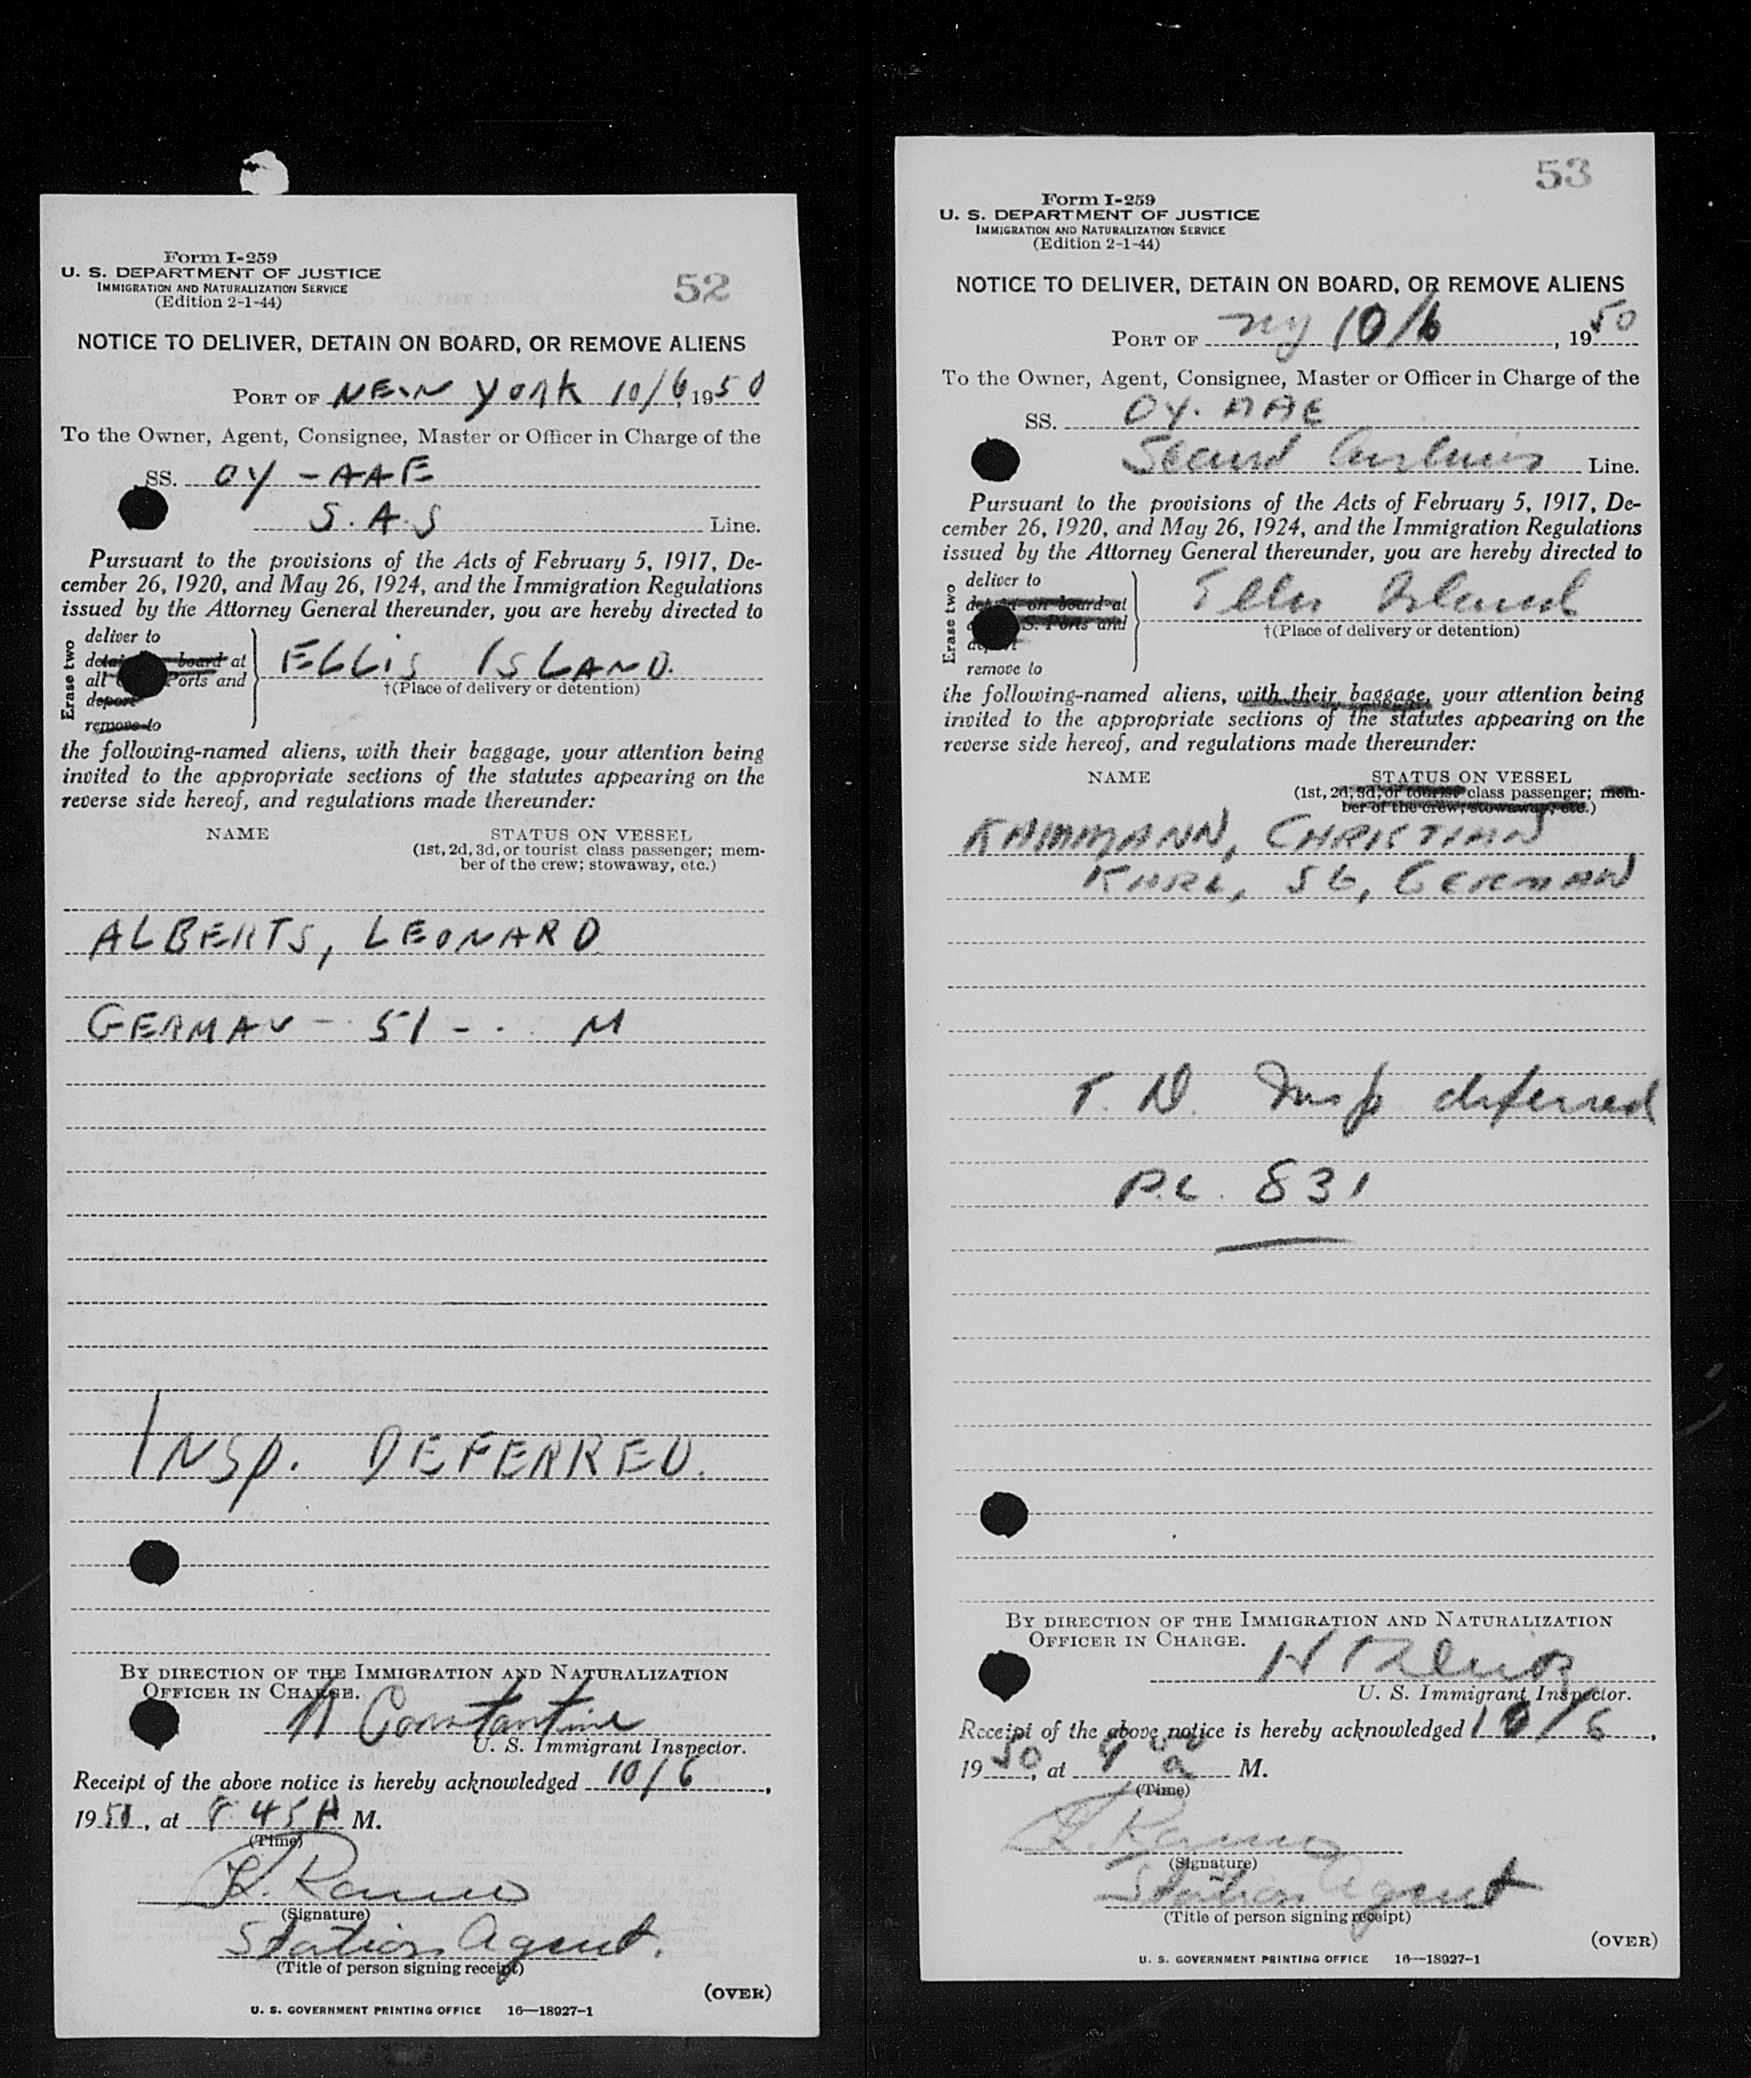 Form I-259
U. S. DEPARTMENT OF JUSTICE
IMMIGRATION AND NATURALIZATION SERVICE
(Edition 2-1-44)
52
NOTICE TO DELIVER, DETAIN ON BOARD, OR REMOVE ALIENS
PORT OF NEW YORK 10/6, 1950
To the Owner, Agent, Consignee, Master or Officer in Charge of the
SS. OY-AAE
S.A.S Line.
Pursuant to the provisions of the Acts of February 5, 1917, De-
cember 26, 1920, and May 26, 1924, and the Immigration Regulations
issued by the Attorney General thereunder, you are hereby directed to
Erase two
deliver to
board at
all Ports and
deport
remove to
ELLIS ISLAND.
†(Place of delivery or detention)
the following-named aliens, with their baggage, your attention being
invited to the appropriate sections of the statutes appearing on the
reverse side hereof, and regulations made thereunder:
NAME STATUS ON VESSEL
(1st, 2d, 3d, or tourist class passenger; mem-
ber of the crew; stowaway, etc.)
ALBERTS, LEONARD
GERMAN - 51 - M
INSP. DEFERRED.
BY DIRECTION OF THE IMMIGRATION AND NATURALIZATION
OFFICER IN CHARGE.
Constantine
U. S. Immigrant Inspector.
Receipt of the above notice is hereby acknowledged 10/6,
1950, at 8 45 A M.
(Time)
(Signature)
Station Agent.
(Title of person signing receipt)
(OVER)
U. S. GOVERNMENT PRINTING OFFICE 16—18927-1
53
Form I-259
U. S. DEPARTMENT OF JUSTICE
IMMIGRATION AND NATURALIZATION SERVICE
(Edition 2-1-44)
NOTICE TO DELIVER, DETAIN ON BOARD, OR REMOVE ALIENS
PORT OF NY 10/6, 1950
To the Owner, Agent, Consignee, Master or Officer in Charge of the
SS. OY. AAE
Scand Airlines Line.
Pursuant to the provisions of the Acts of February 5, 1917, De-
cember 26, 1920, and May 26, 1924, and the Immigration Regulations
issued by the Attorney General thereunder, you are hereby directed to
Erase two
deliver to
on board at
S. Ports and
remove to
Ellis Island
†(Place of delivery or detention)
the following-named aliens, with their baggage, your attention being
invited to the appropriate sections of the statutes appearing on the
reverse side hereof, and regulations made thereunder:
NAME STATUS ON VESSEL
(1st, 2d, 3d, or tourist class passenger; mem-
ber of the crew; stowaway, etc.)
KAMMANN, CHRISTIAN
KARL, 56, GERMAN
T. D. Insp deferred
P.L. 831
BY DIRECTION OF THE IMMIGRATION AND NATURALIZATION
OFFICER IN CHARGE.
U. S. Immigrant Inspector.
Receipt of the above notice is hereby acknowledged 10/6,
1950, at 9 00 a M.
(Time)
(Signature)
Station Agent
(Title of person signing receipt)
(OVER)
U. S. GOVERNMENT PRINTING OFFICE 16—18927-1